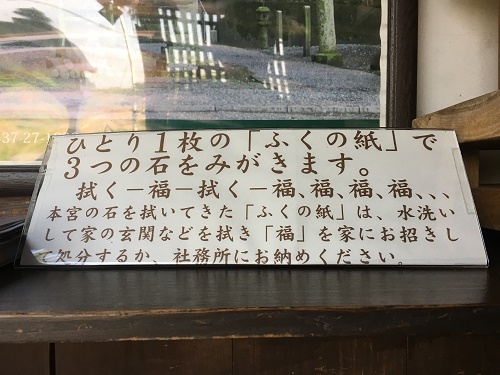 37-27-1
ひとり1枚の「ふくの紙」で
3つの石をみがきます。
拭く－福－拭く－福、福、福、福、、、
本宮の石を拭いてきた「ふくの紙」は、水洗い
して家の玄関などを拭き「福」を家にお招きし
て処分するか、社務所にお納めください。